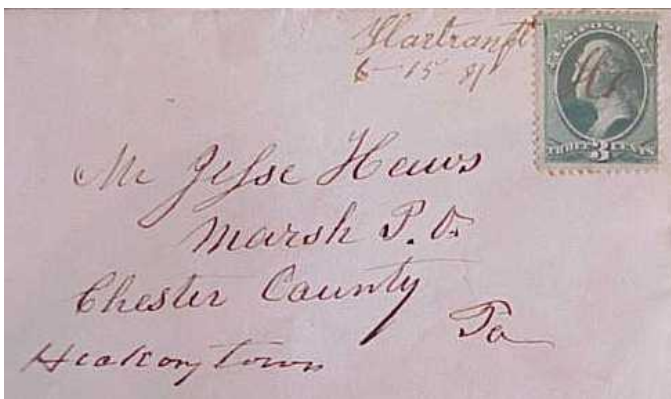 Hartranft
6 15 81
U.S. POSTAGE
THREE 3 CENTS
Mr Jesse Haws
Marsh P. O.
Chester County
Pa